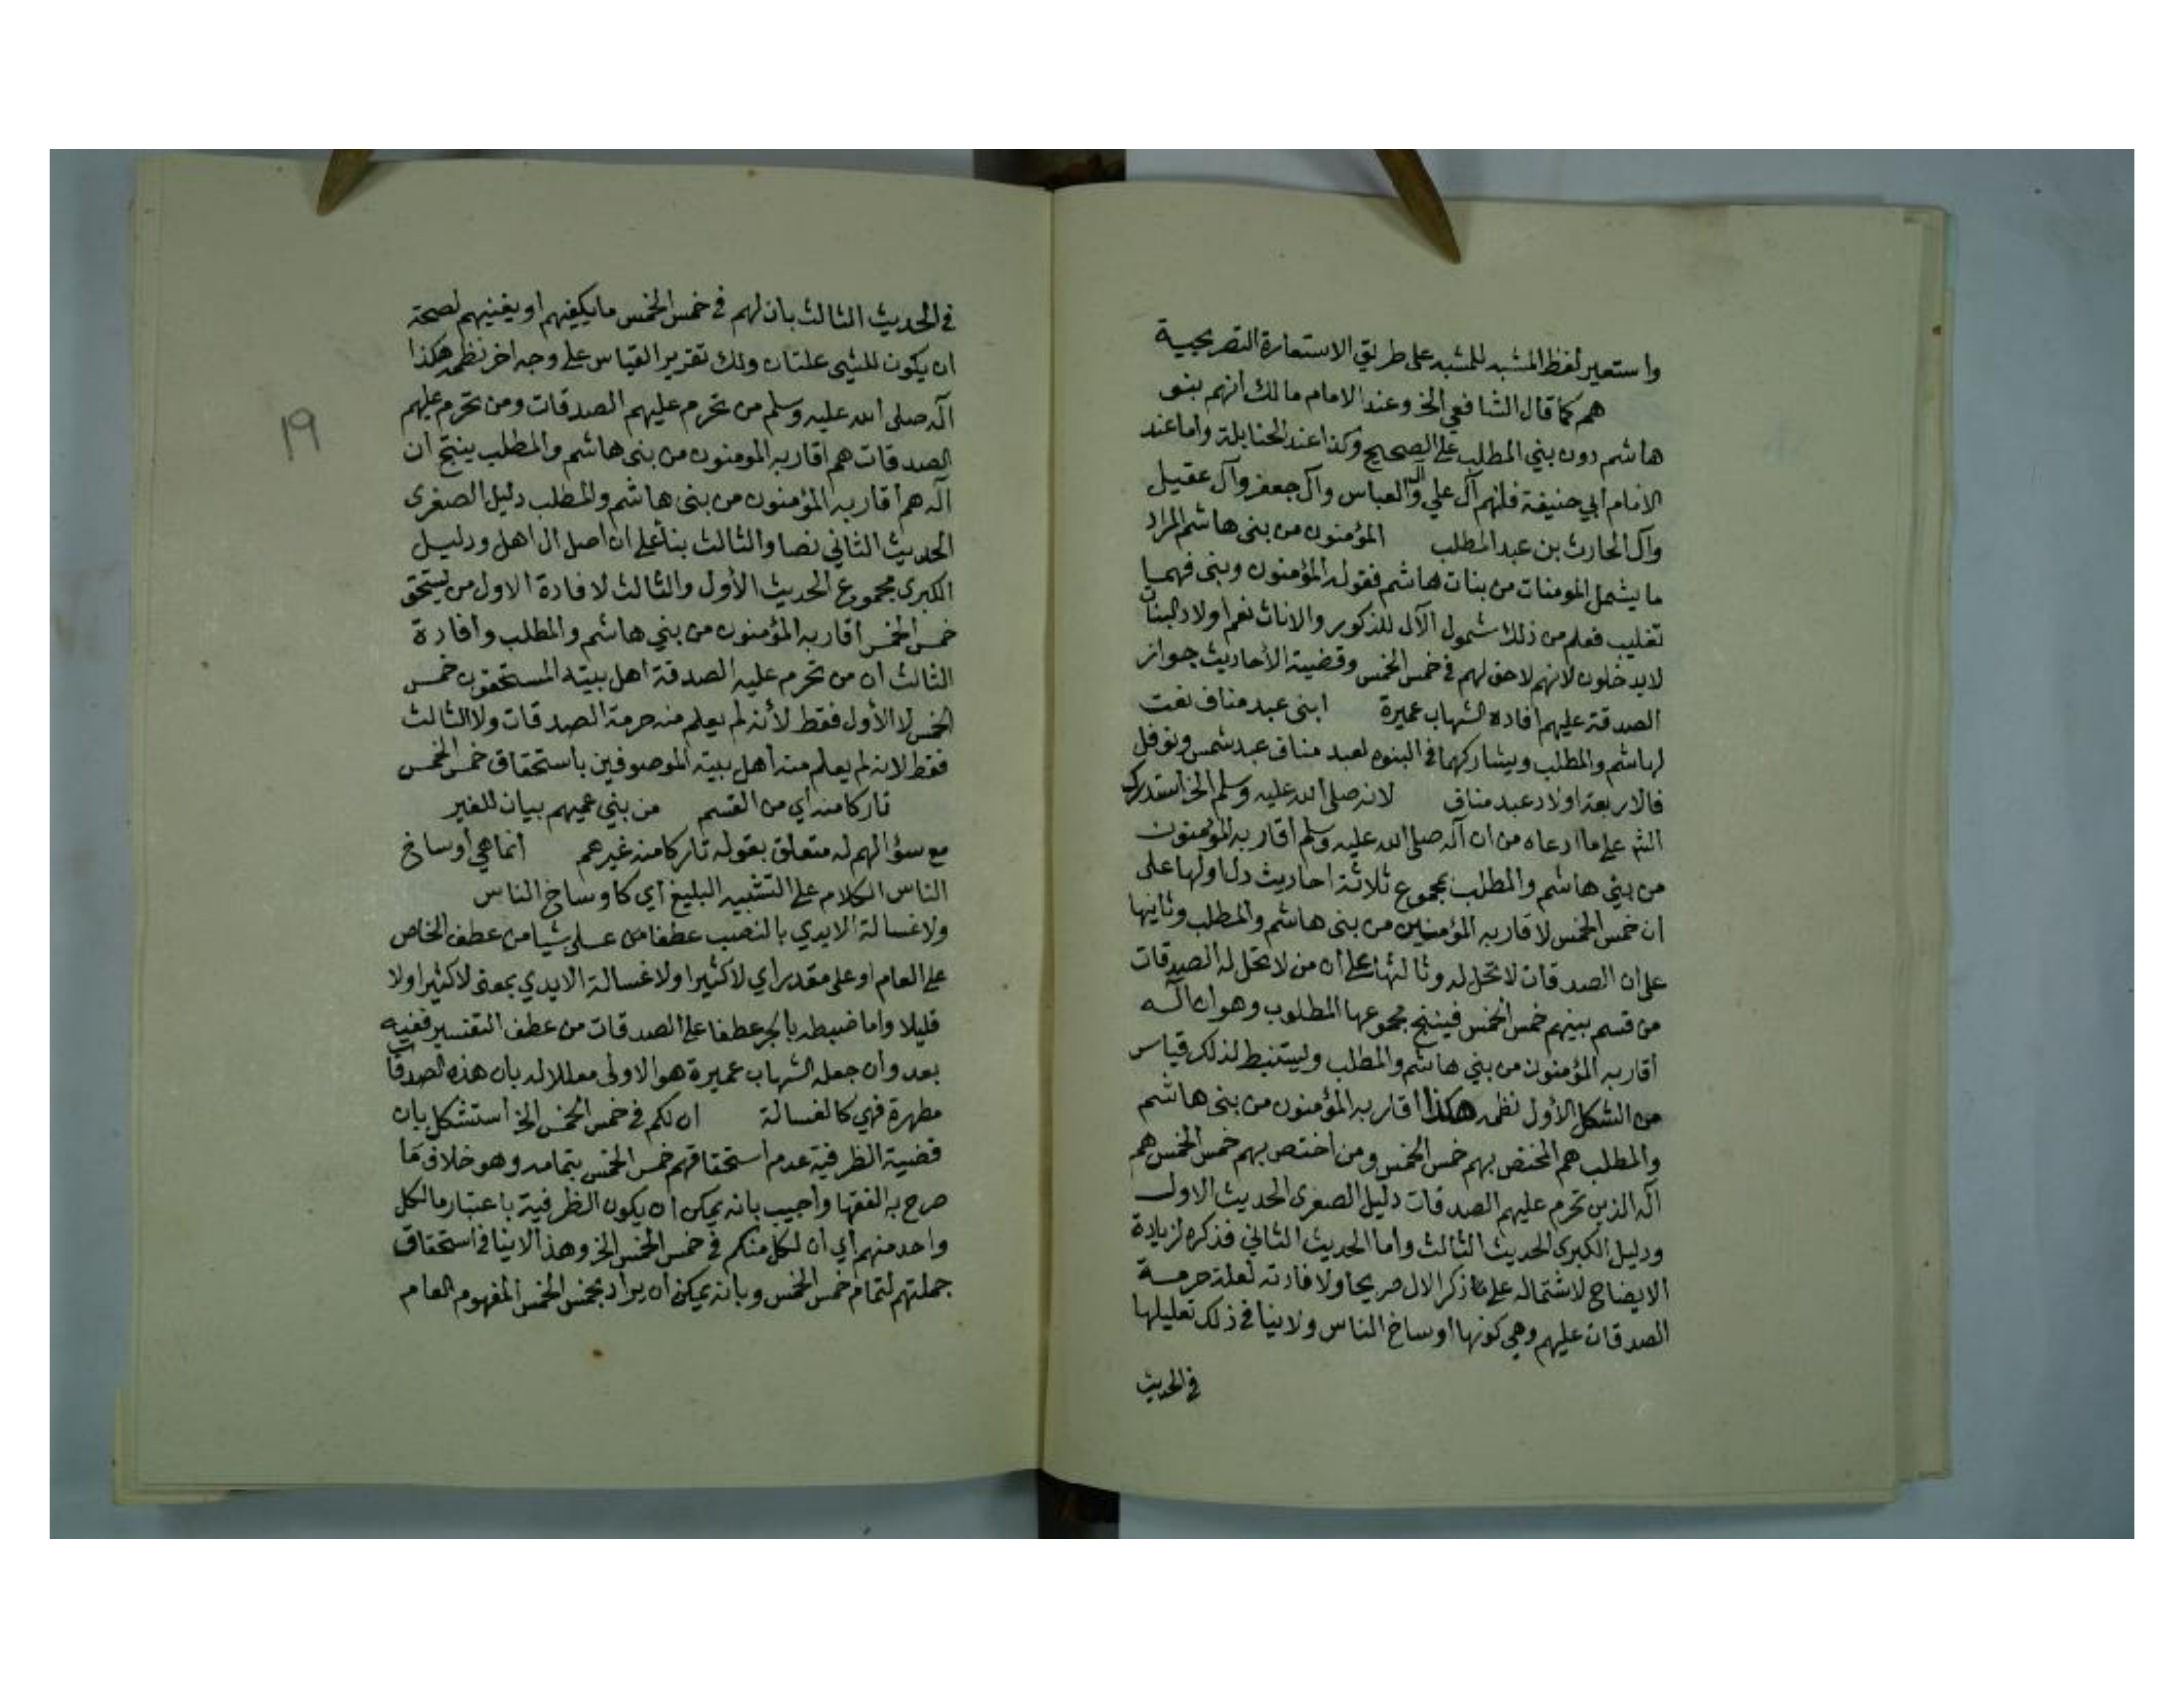 واستعير لفظ المشبه للمشبه على طريق الاستعارة التصريحية
هم كما قال الشافعي الخ وعند الامام مالك انهم بنو
هاشم دون بني المطلب على الصحيح وكذا عند الحنابلة واما عند
الامام أبي حنيفة فلنهم آل علي وآل العباس وآل جعفر وآل عقيل
وآل الحارث بن عبد المطلب المؤمنون من بنى هاشم المراد
ما يشمل المومنات من بنات هاشم فقوله المؤمنون وبنى فهميا
تغليب فعلم من ذلك شمول الآل للذكور والاناث نعم اولاد البنات
لايدخلون لانهم لاحق لهم في خمس الخمس وقضية الأحاديث جواز
الصدقة عليهم افاده الشهاب عميرة ابنى عبد مناف نعت
لهاشم والمطلب ويشاركهما في البنوه لعبد مناف عبد شمس ونوفل
فالاربعة اولاد عبد مناف لانه صلى الله عليه وسلم الخ استدرك
الشم على ما ادعاه من ان آله صلى الله عليه وسلم أقاربه المؤمنون
من بيني هاشم والمطلب بمجموع ثلاثة احاديث دل اولها على
ان خمس الخمس لاقاربه المؤمنين من بنى هاشم والمطلب وثانيها
على ان الصدقات لا تحل له وثالثها على أن من لا تحل له الصدقات
من قسم بينهم خمس الخمس فينتج مجموعها المطلوب وهو ان آله
أقاربه المؤمنون من بيني هاشم والمطلب وليستنبط لذلك قياس
من الشكل الأول نظمه هكذا أقاربه المؤمنون من بنى هاشم
والمطلب هم المختص بهم خمس الخمس ومن اختص بهم خمس الخمس هم
آله الذين تحرم عليهم الصدقات دليل الصغرى الحديث الاول
ودليل الكبرى الحديث الثالث وأما الحديث الثاني فذكره لزيادة
الايضاح لاشتماله على ما ذكر الال صريحا ولافادته لعلة حرمة
الصدقات عليهم وهي كونها اوساخ الناس ولا ينافي ذلك تعليلها
في الحديث
في الحديث الثالث بان لهم في خمس الخمس ما يكفيهم او يغنيهم لصحة
ان يكون للشيى علتان ولك تقرير القياس على وجه اخر نظمه هكذا
آله صلى الله عليه وسلم من تحرم عليهم الصدقات ومن تحرم عليهم
الصدقات هم أقاربه المومنون من بنى هاشم والمطلب ينتج ان
آله هم أقاربه المؤمنون من بنى هاشم والمطلب دليل الصغرى
الحديث الثاني نصا والثالث بناء على ان اصل ال اهل ودليل
الكبرى مجموع الحديث الأول والثالث لافادة الاول من يستحق
خمس الخمس أقاربه المؤمنون من بني هاشم والمطلب وافادة
الثالث أن من تحرم عليه الصدقة اهل بيته المستحقون خمس
الخمس لا الأول فقط لأنه لم يعلم منه حرمة الصدقات ولا الثالث
فقط لانه لم يعلم منه أهل بيته الموصوفين باستحقاق خمس الخمس
تاركا منه أي من القسم من بني عميهم بيان للغير
مع سؤالهم له متعلق بقوله تاركا منه غيرهم انما هي أوساخ
الناس الكلام على التشبيه البليغ أي كاوساخ الناس
ولا غسالة الايدي بالنصب عطفا من على شيا من عطف الخاص
على العام او على مقدر اي لا كثيرا ولا غسالة الايدي بمعنى لا كثيرا ولا
قليلا واما ضبطه بالجر عطفا على الصدقات من عطف التفسير ففيه
بعد وان جعله الشهاب عميرة هو الاولى معللا له بان هذه الصدقات
مطهرة فهي كالغسالة ان لكم في خمس الخمس الخ استشكل بان
قضية الظرفية عدم استحقاقهم خمس الخمس بتمامه وهو خلاف ما
صرح به الفقها وأجيب بانه يمكن أن يكون الظرفية باعتبار ما لكل
واحد منهم أي أن لكل منكم في خمس الخمس الخ وهذا لا ينافي استحقاق
جملتهم لتمام خمس الخمس وبانه يمكن أن يراد بخمس الخمس المفهوم العام
١٩